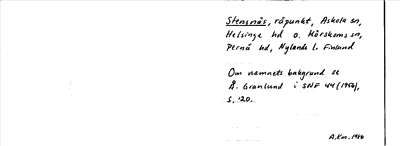 Stensnäs, råpunkt, Askola sn,
Helsinge hd o. Mörskoms sn,
Pernå hd, Nylands l. Finland
Om namnets bakgrund se
Å. Granlund i SNF 44 (1956),
s. 120.
A.Km. 1986